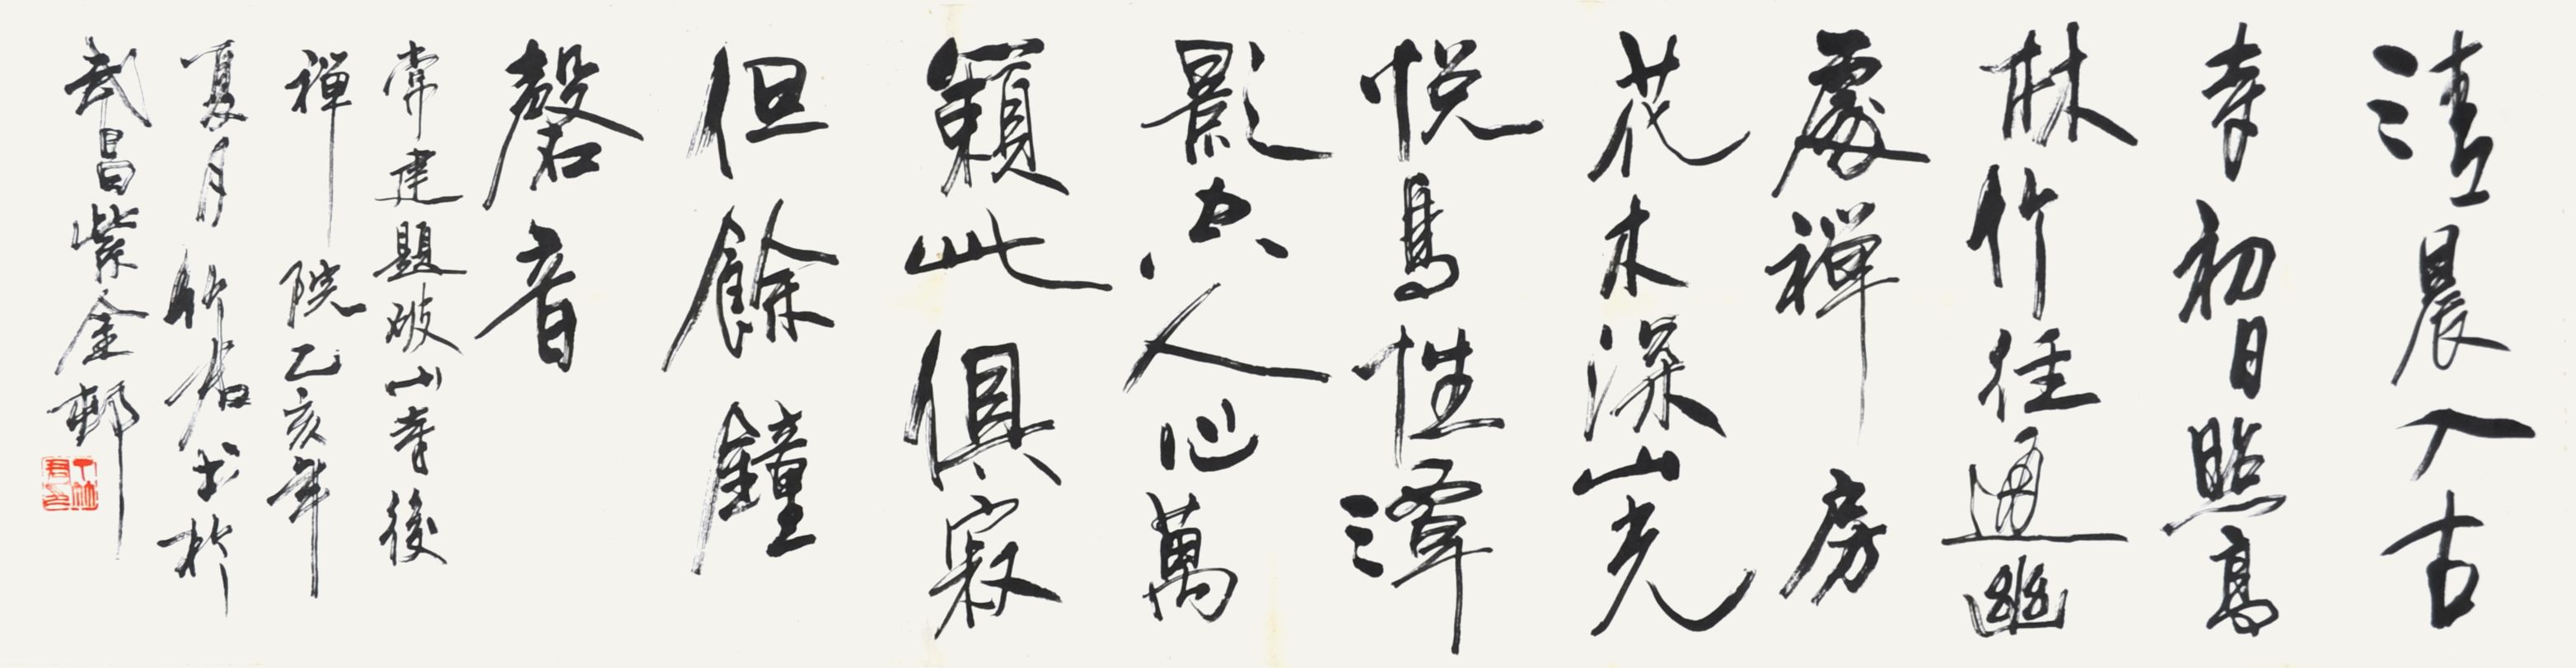 清晨入古
寺初日照高
林竹径通幽
處禅房
花木深山光
悦鳥性潭
影空人心萬
籟此俱寂
但餘鐘
磬音
常建題破山寺後
禅院乙亥年
夏月竹君书於
武昌紫金邨